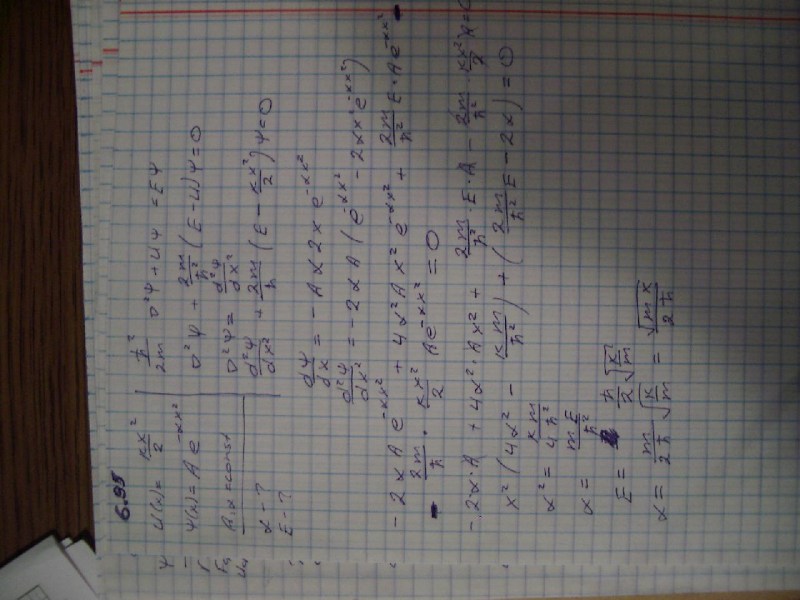 6.95
U(x) = kx²/2
Ψ(x) = A e^-αx²
A, α = const
α - ?
E - ?
ħ²/2m ∇²Ψ + UΨ = EΨ
∇²Ψ + 2m/ħ² (E - U)Ψ = 0
∇²Ψ = d²Ψ/dx²
d²Ψ/dx² + 2m/ħ (E - kx²/2) Ψ = 0
dΨ/dx = - A α 2x e^-αx²
d²Ψ/dx² = - 2αA (e^-αx² - 2αx² e^-αx²)
- 2αA e^-αx² + 4α²Ax² e^-αx² + 2m/ħ² E · A e^-αx² -
- 2m/ħ · kx²/2 A e^-αx² = 0
- 2α·A + 4α²·Ax² + 2m/ħ² · E · A - 2m/ħ² · kx²/2 A = 0
x² (4α² - km/ħ²) + (2m/ħ² E - 2α) = 0
α² = km/4ħ²
α = mE/ħ²
E = ħ/2 √k/m
α = m/2ħ √k/m = √mk/2ħ